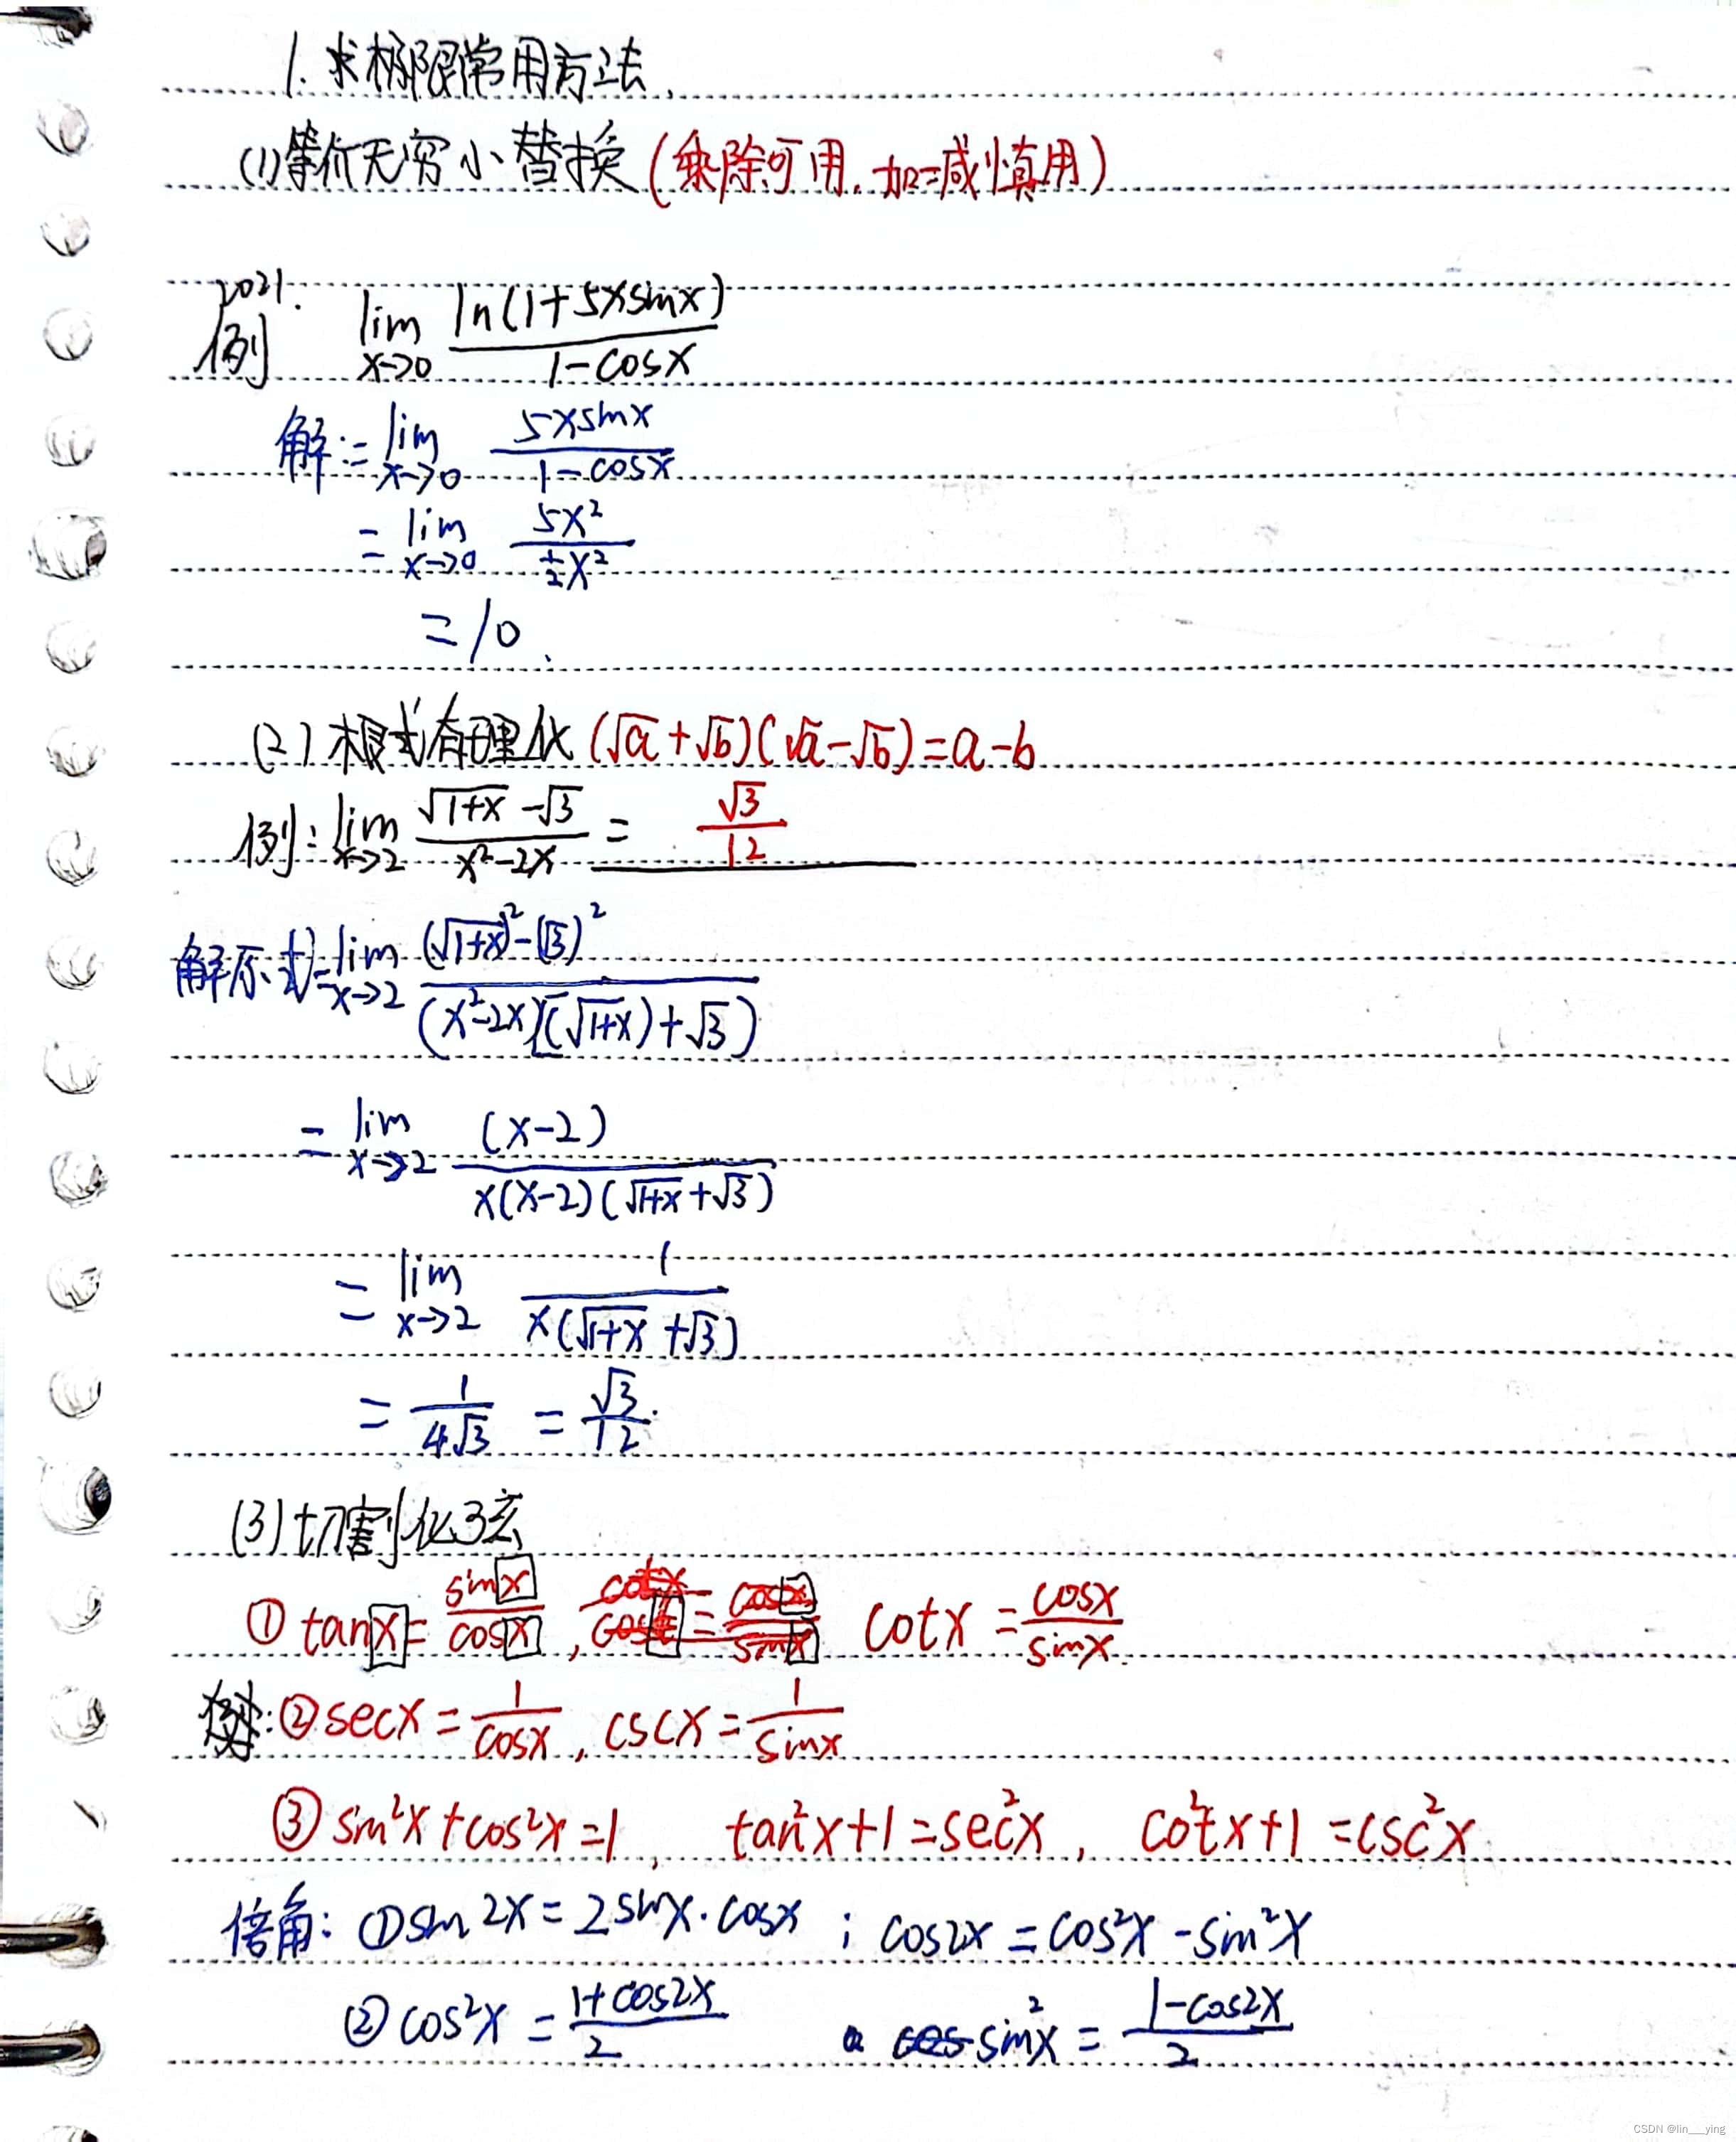 1. 求极限常用方法.
(1)等价无穷小替换(乘除可用.加减慎用)
2021.
例 lim x→0 ln(1+5xsinx) / 1-cosx
解:= lim x→0 5xsinx / 1-cosx
= lim x→0 5x² / ½x²
= 10.
(2) 根式有理化 (√a+√b)(√a-√b)=a-b
例: lim x→2 √1+x -√3 / x²-2x = √3 / 12
解原式= lim x→2 (√1+x)²-(√3)² / (x²-2x)[(√1+x)+√3)
= lim x→2 (x-2) / x(x-2)(√1+x+√3)
= lim x→2 1 / x(√1+x +√3)
= 1 / 4√3 = √3 / 12.
(3)切割化弦
① tanx = sinx / cosx , cotx = cosx / sinx.
② secx = 1 / cosx , cscx = 1 / sinx
③ sin²x+cos²x=1, tan²x+1=sec²x, cot²x+1=csc²x
倍角: ①sin2x=2sinx·cosx ; cos2x=cos²x-sin²x
② cos²x = 1+cos2x / 2 sin²x = 1-cos2x / 2
CSDN @lin___ying